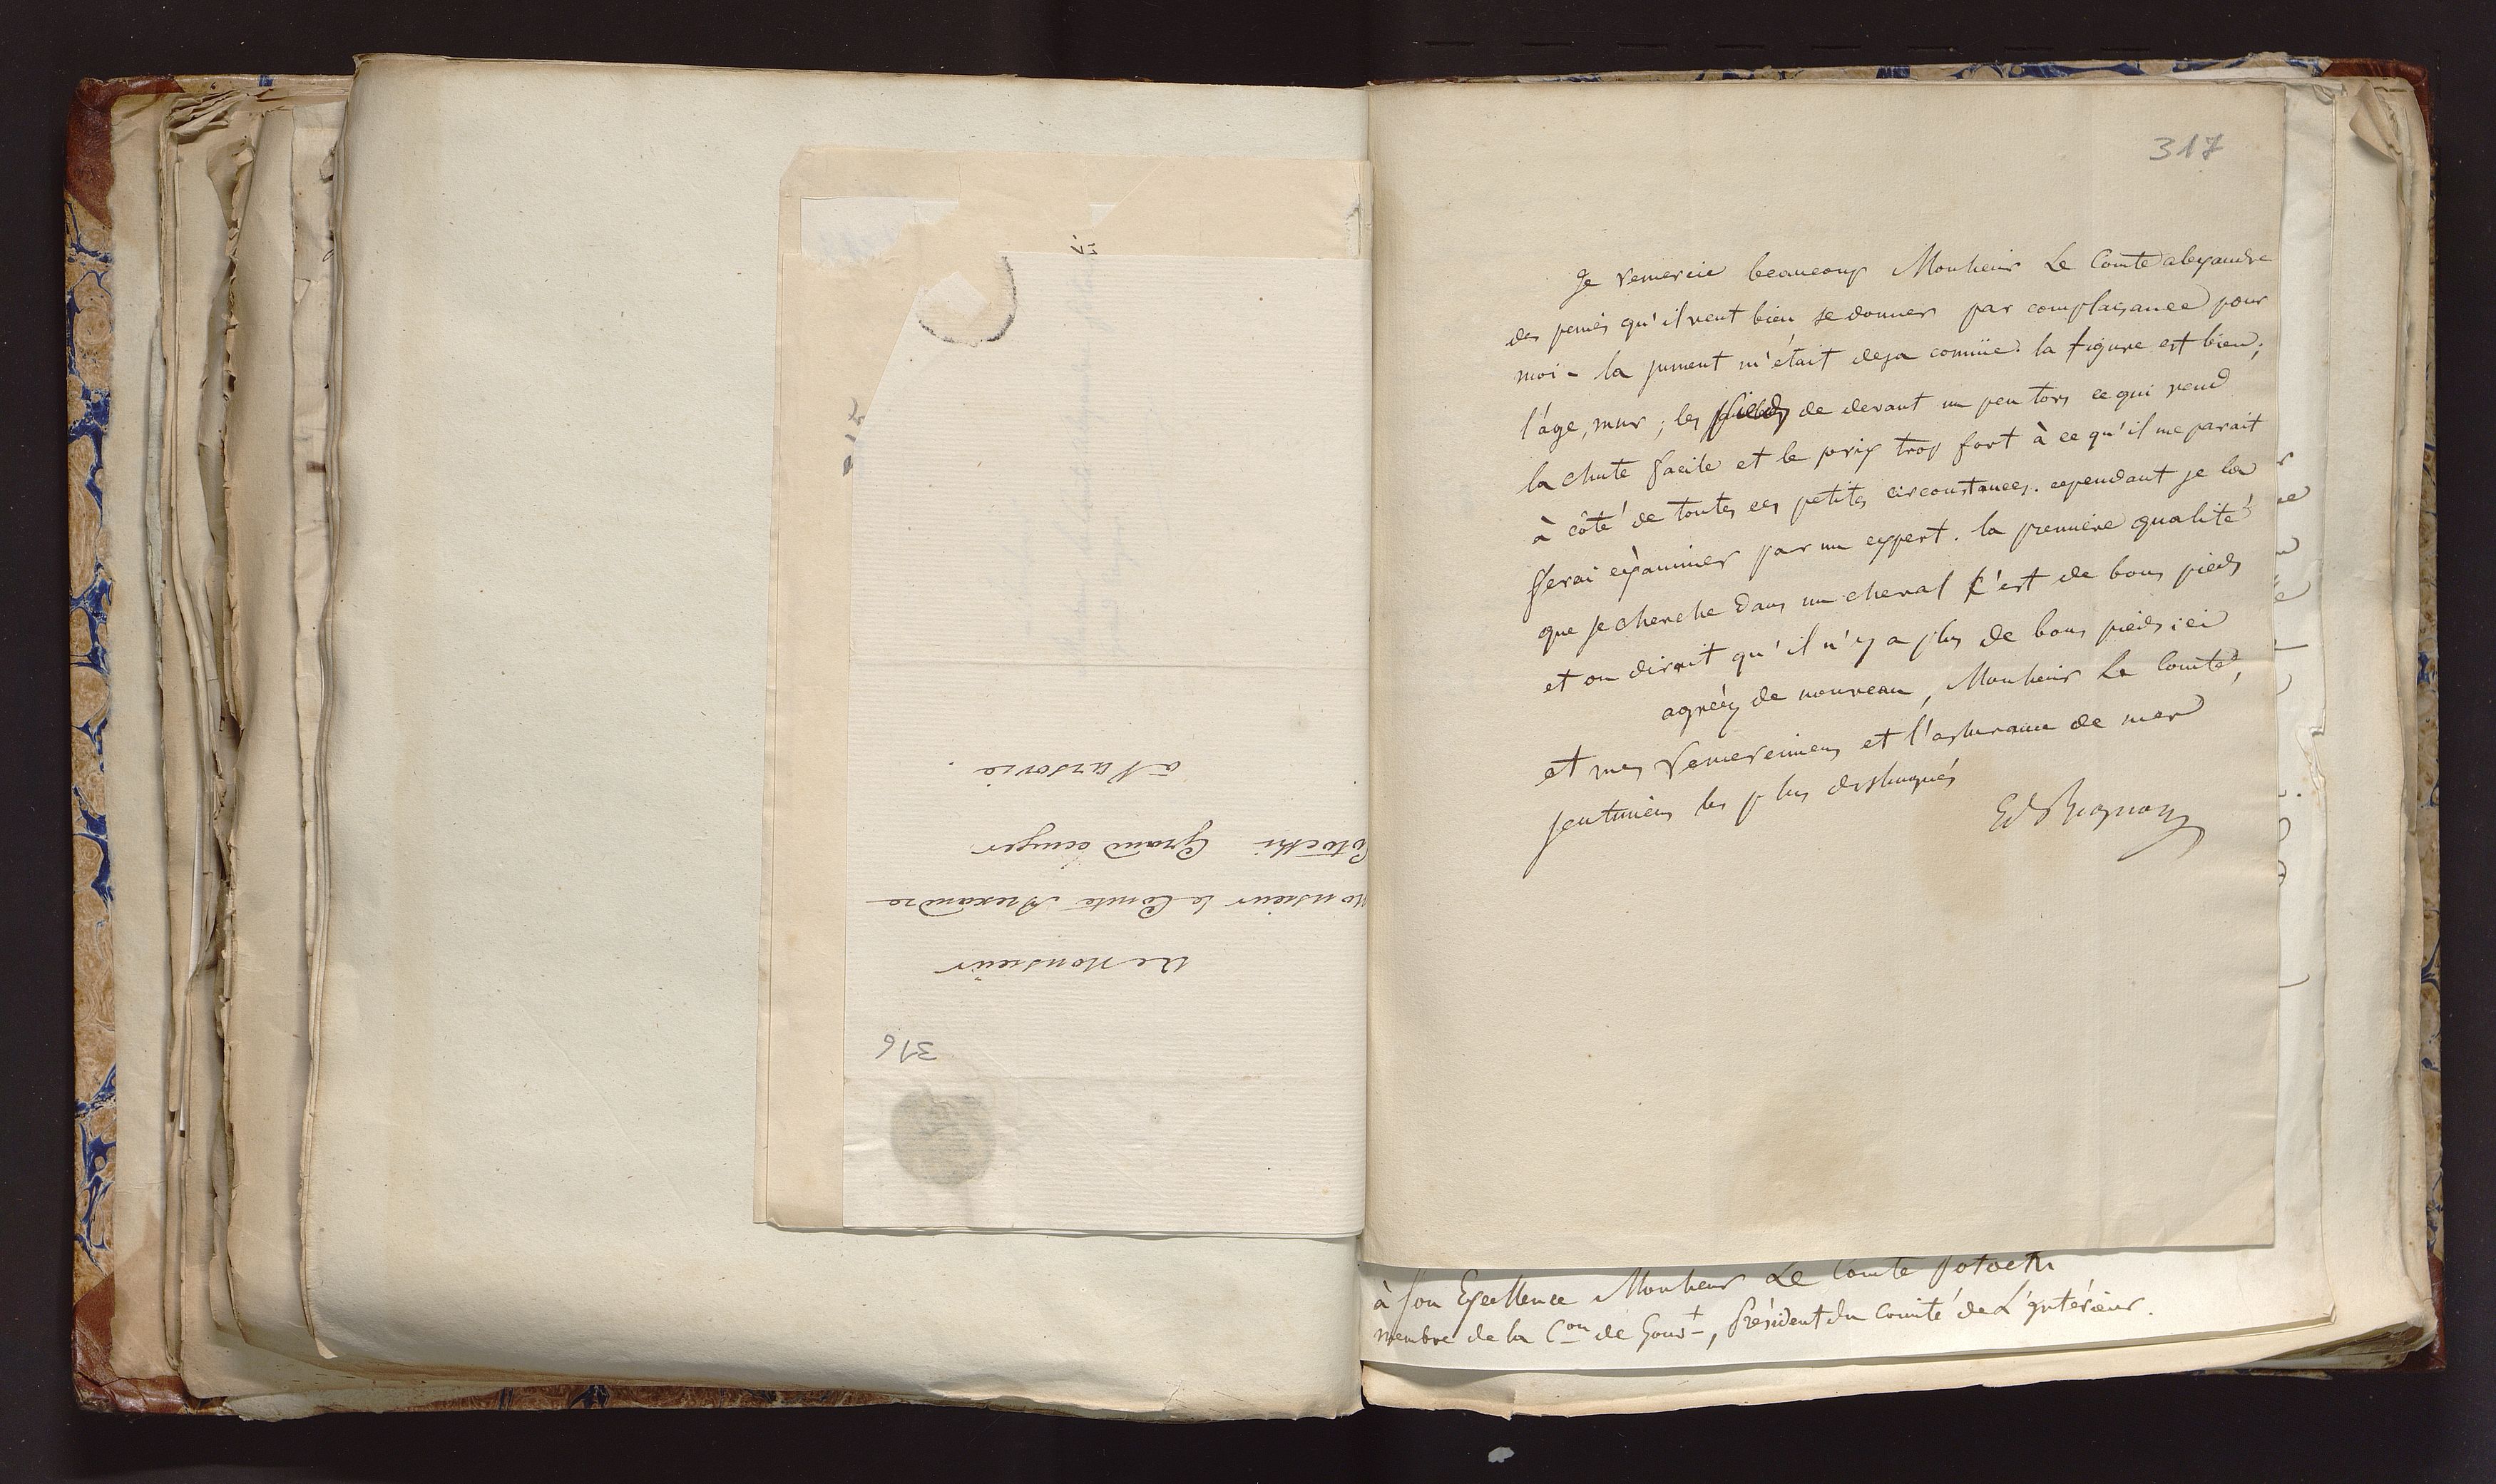 à Varsovie.
Potocki Grand ecuyer
Monsieur le Comte Alexandre
A Monsieur
316
317
Je remercie beaucoup Monsieur Le Comte alexandre
des peines qu'il veut bien se donner par complaisance pour
moi - la jument m'était deja connüe. la figure est bien;
l'âge, mur; les pieds de devant un peu tors ce qui rend
la chute facile et le prix trop fort à ce qu'il me parait
à côté de toutes ces petites circonstances. cependant je la
ferai éxaminer par un expert. la première qualité
que je cherche dans un cheval c'est de bons pieds
et on dirait qu'il n'y a plus de bons pieds ici
agréez de nouveau, Monsieur Le Comte,
et mes remerciemens et l'assurance de mes
sentimens les plus distingués
Ed Bignon
à Son Excellence Monsieur Le Comte Potocki
membre de la Con de Gouvt, Président du Comité de L'Intérieur.